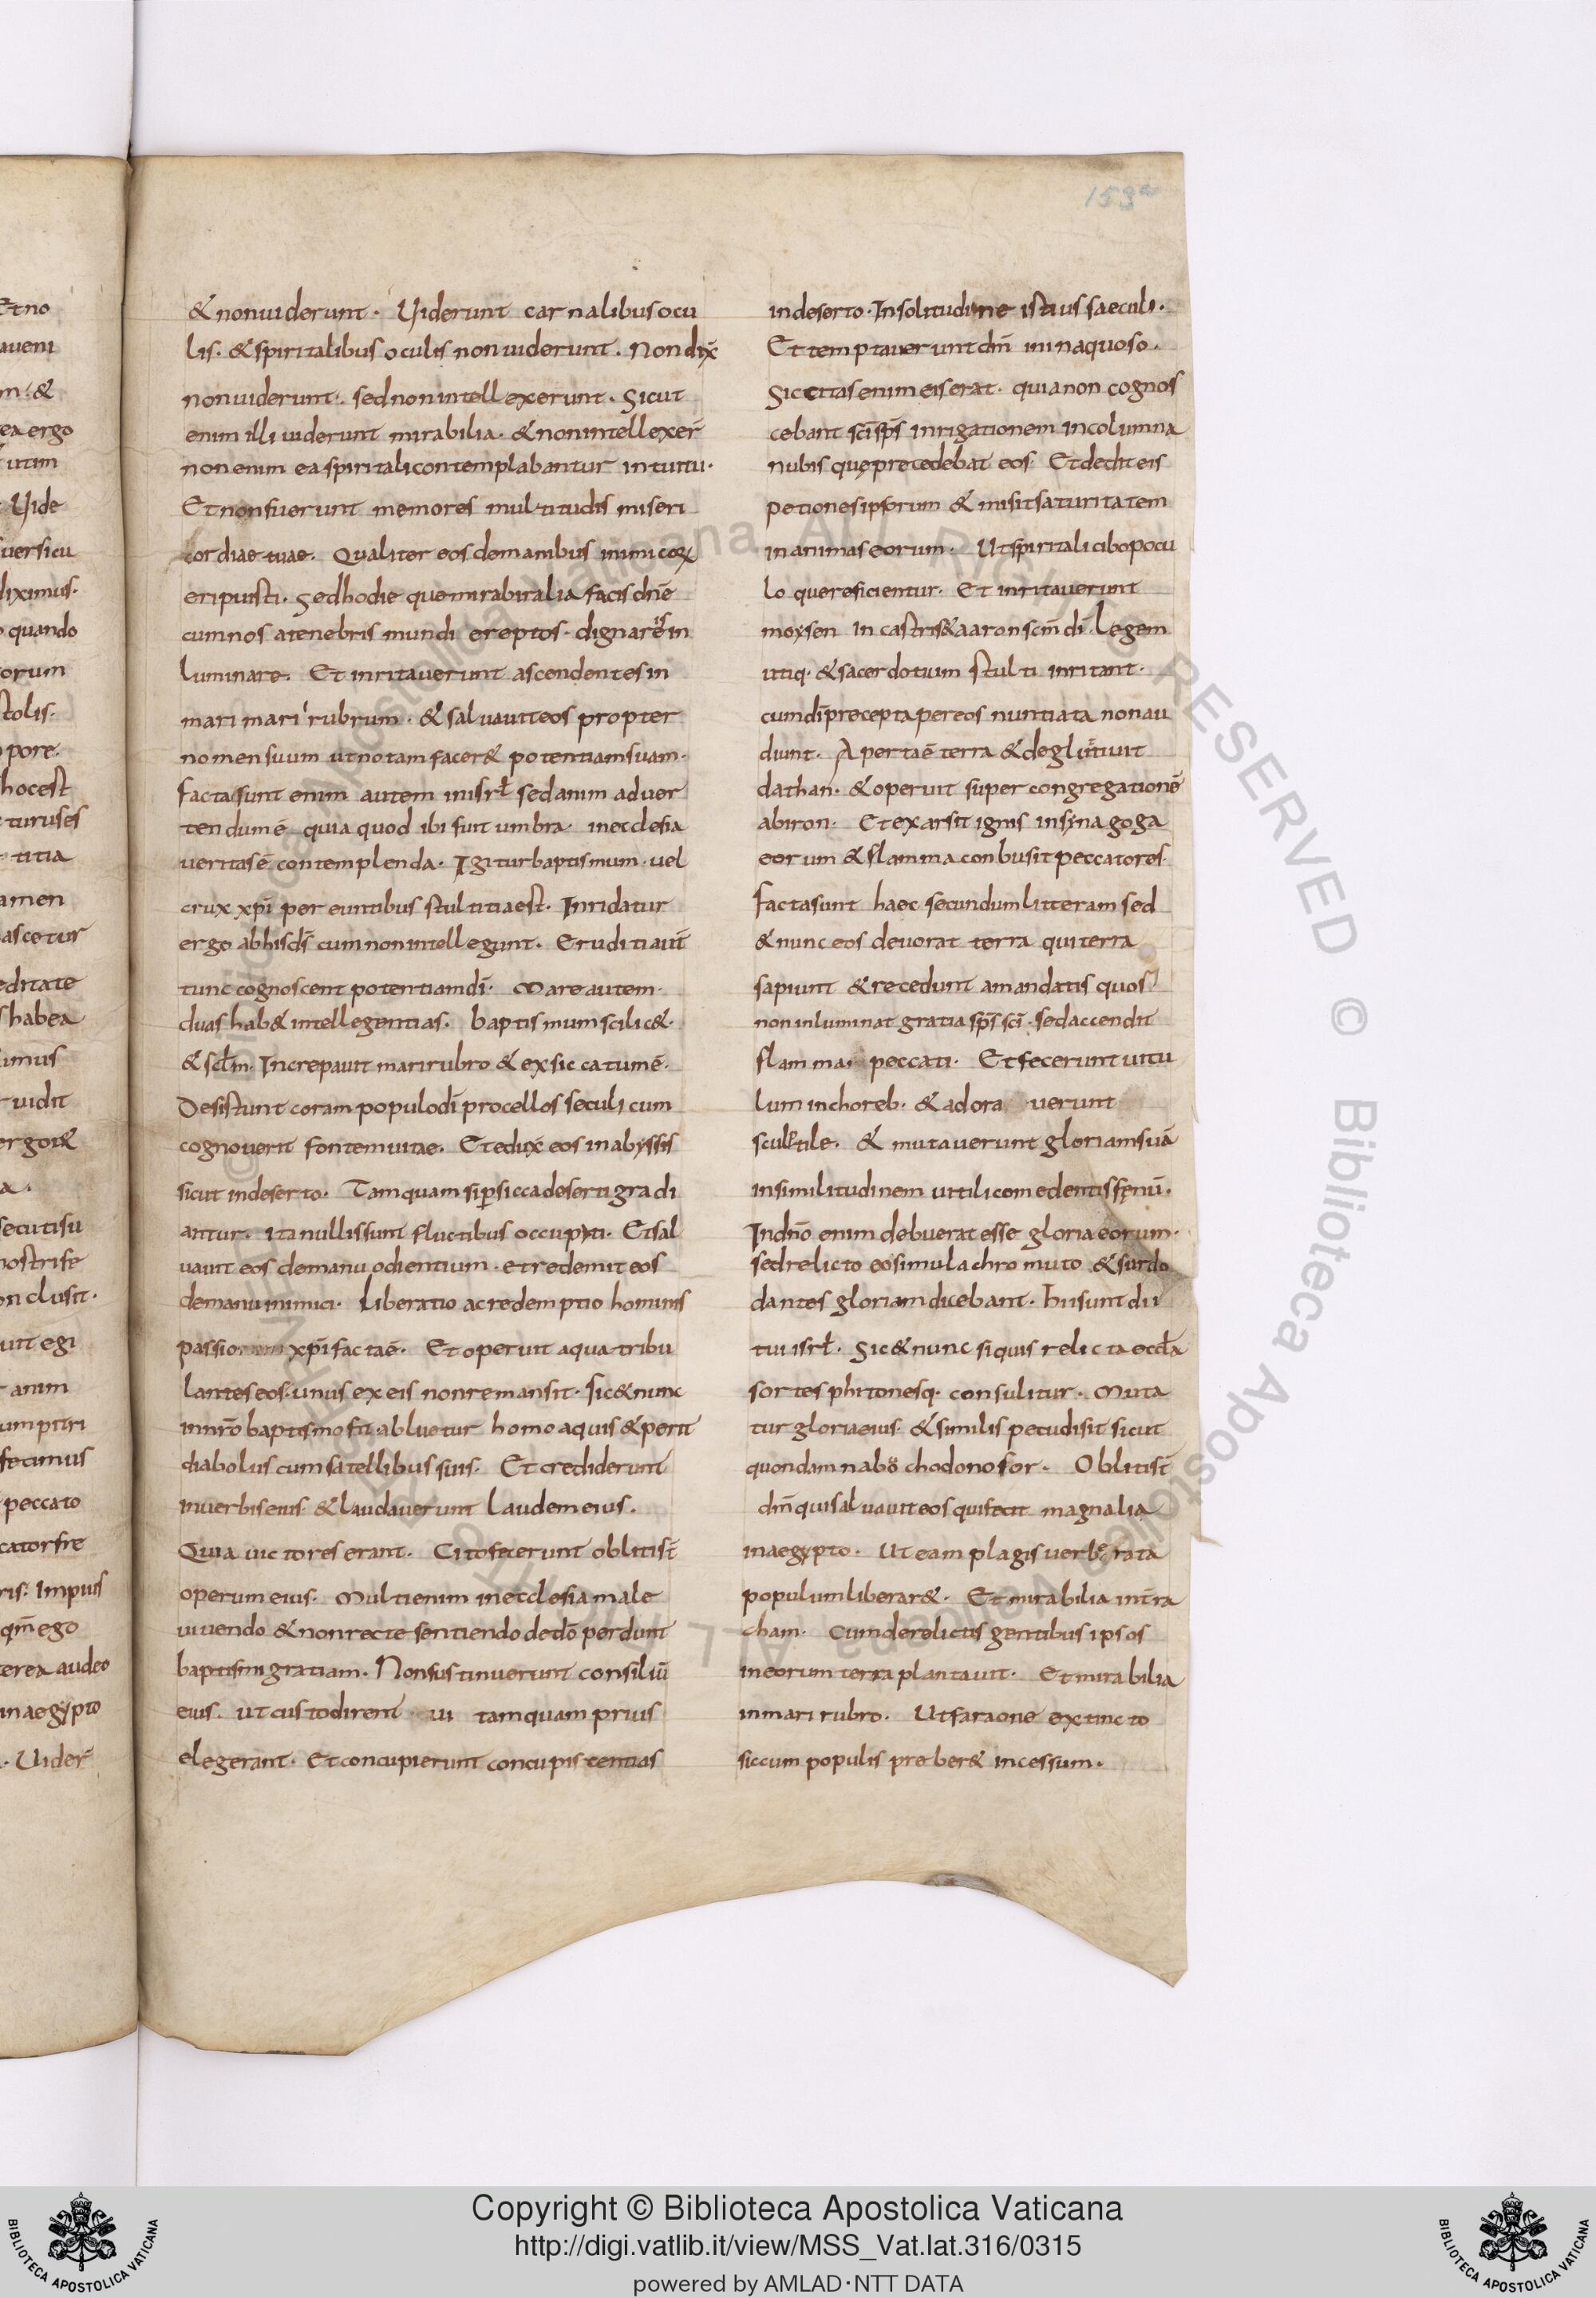 153a
& non uiderunt. Uiderunt carnalibus ocu
lis. & spiritalibus oculis non uiderunt. Non dix̄
non uiderunt. sed non intellexerunt. Sicut
enim illi uiderunt mirabilia. & non intellexer̄
non enim ea spiritali contemplabantur intuitu.
Et non fuerunt memores multitudis miseri
cordiae tuae. Qualiter eos de manibus inimicoꝝ
eripuisti. Sed hodie que mirabiralia facis dn̄e
cum nos a tenebris mundi ereptos. dignar̄is in
luminare. Et inritauerunt ascendentes in
mari mari rubrum. & saluauit eos propter
nomen suum ut notam facer& potentiam suam.
facta sunt enim autem in isrł sed anim aduer
tendum ē quia quod ibi fuit umbra. in ecclesia
ueritas ē contemplenda. Igitur baptismum. uel
crux xp̄i pereuntibus stultitia est. Inridatur
ergo ab his ds̄ cum non intellegunt. Eruditi aut̄
tunc cognoscent potentiam dī. Mare autem.
duas hab& intellegentias. baptismum scilic&.
& scłm. Increpauit mari rubro & exsiccatum ē.
Desistunt coram populo dī procellos seculi cum
cognouerit fontem uitae. Et edux̄ eos in abyssis
sicut in deserto. Tamquam si ꝑ sicca deserti gradi
antur. ita nullis sunt fluctibus occupati. Et sal
uauit eos de manu odientium. et redemit eos
de manu inimici. Liberatio ac redemptio hominis
passio xp̄i facta ē. Et operuit aqua tribu
lantes eos. unus ex eis non remansit. sic & nunc
in nrō baptismo fit. abluetur homo aquis & perit
diabolus cum satellibus suis. Et crediderunt
in uerbis eius. & laudauerunt laudem eius.
Quia uictores erant. Cito fecerunt oblitis t̄
operum eius. Multi enim in ecclesia male
uiuendo & non recte sentiendo de dō perdunt
baptismi gratiam. Non sustinuerunt consiliū
eius. ut custodirent ui tamquam prius
elegerant. Et concupierunt concupiscentias
in deserto. In solitudine istius saeculi.
Et temptauerunt dm̄ in inaquoso.
Siccitas enim eis erat. quia non cognos
cebant sc̄i sp̄s inrigationem in columna
nubis quę precedebat eos. Et dedit eis
petiones ipsorum & misit saturitatem
in animas eorum. Ut spiritali cibo pocu
lo que reficientur. Et inritauerunt
moysen in castris & aaron scm̄ dī. Legem
utiq. & sacerdotium stulti inritant.
cum dī precepta per eos nuntiata non au
diunt. Aperta ē terra & degluttiuit
dathan. & operuit super congregationē
abiron. Et exarsit ignis in synagoga
eorum & flamma conbusit peccatores.
facta sunt haec secundum litteram sed
& nunc eos deuorat terra qui terra
sapiunt & recedunt a mandatis quos
non inluminat gratia sp̄s sc̄i. sed accendit
flamma peccati. Et fecerunt uitu
lum in choreb. & adorauerunt
sculptile. & mutauerunt gloriam suā
in similitudinem uitili comedentis fęnū.
In dn̄o enim debuerat esse gloria eorum.
sed relicto eo simulachro muto & surdo
dantes gloriam dicebant. Hii sunt dii
tui isrł. Sic & nunc si quis relicta eccła
sortes phitonesq. consulitur. Muta
tur gloria eius. & similis pecudi sit sicut
quondam nabochodonosor. Oblitis t̄
dm̄ qui saluauit eos qui fecit magnalia
in aegypto. Ut eam plagis uerberata
populum liberar&. Et mirabilia in t̄ra
cham. Cum derelictis gentibus ipsos
in eorum terra plantauit. Et mirabilia
in mari rubro. Ut faraone extincto
siccum populis preber& incessum.
Copyright © Biblioteca Apostolica Vaticana
http://digi.vatlib.it/view/MSS_Vat.lat.316/0315
powered by AMLAD·NTT DATA
BIBLIOTECA APOSTOLICA VATICANA
BIBLIOTECA APOSTOLICA VATICANA